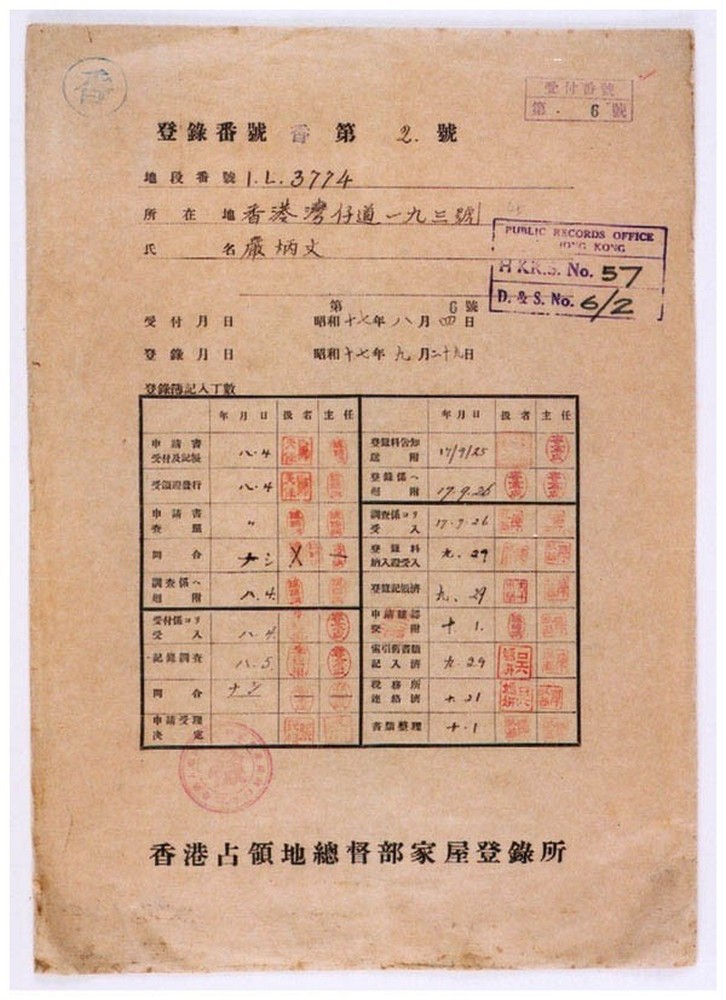 香
受付番號
第 6 號
登錄番號 香 第 2. 號
地段番號 I.L.3774
所在地 香港灣仔道一九三號
氏名 嚴炳文
PUBLIC RECORDS OFFICE
HONG KONG
H.K.R.S. No. 57
D. & S. No. 6/2
第 6 號
受付月日 昭和十七年八月四日
登錄月日 昭和十七年九月二十九日
登錄簿記入丁數
年月日 扱者 主任
申請書受付及記帳 八.4
受領證發行 八.4
申請書查 〃
問合 ナシ
調查係へ廻附 八.4.
受付係ヨリ受入 八.4.
記錄調查 八.5.
問合 ナシ
申請受理決定
年月日 扱者 主任
登錄料告知送附 17/9/25
登錄係へ廻附 17.9.26
調查係ヨリ受入 17.9.26
登錄料納入證受入 九.29
登錄記載濟 九.29
申請確認受附 十.1.
索引舊書類記入濟 九.29
稅務所連絡濟 十.21
書類整理 十.1
香港占領地總督部家屋登錄所